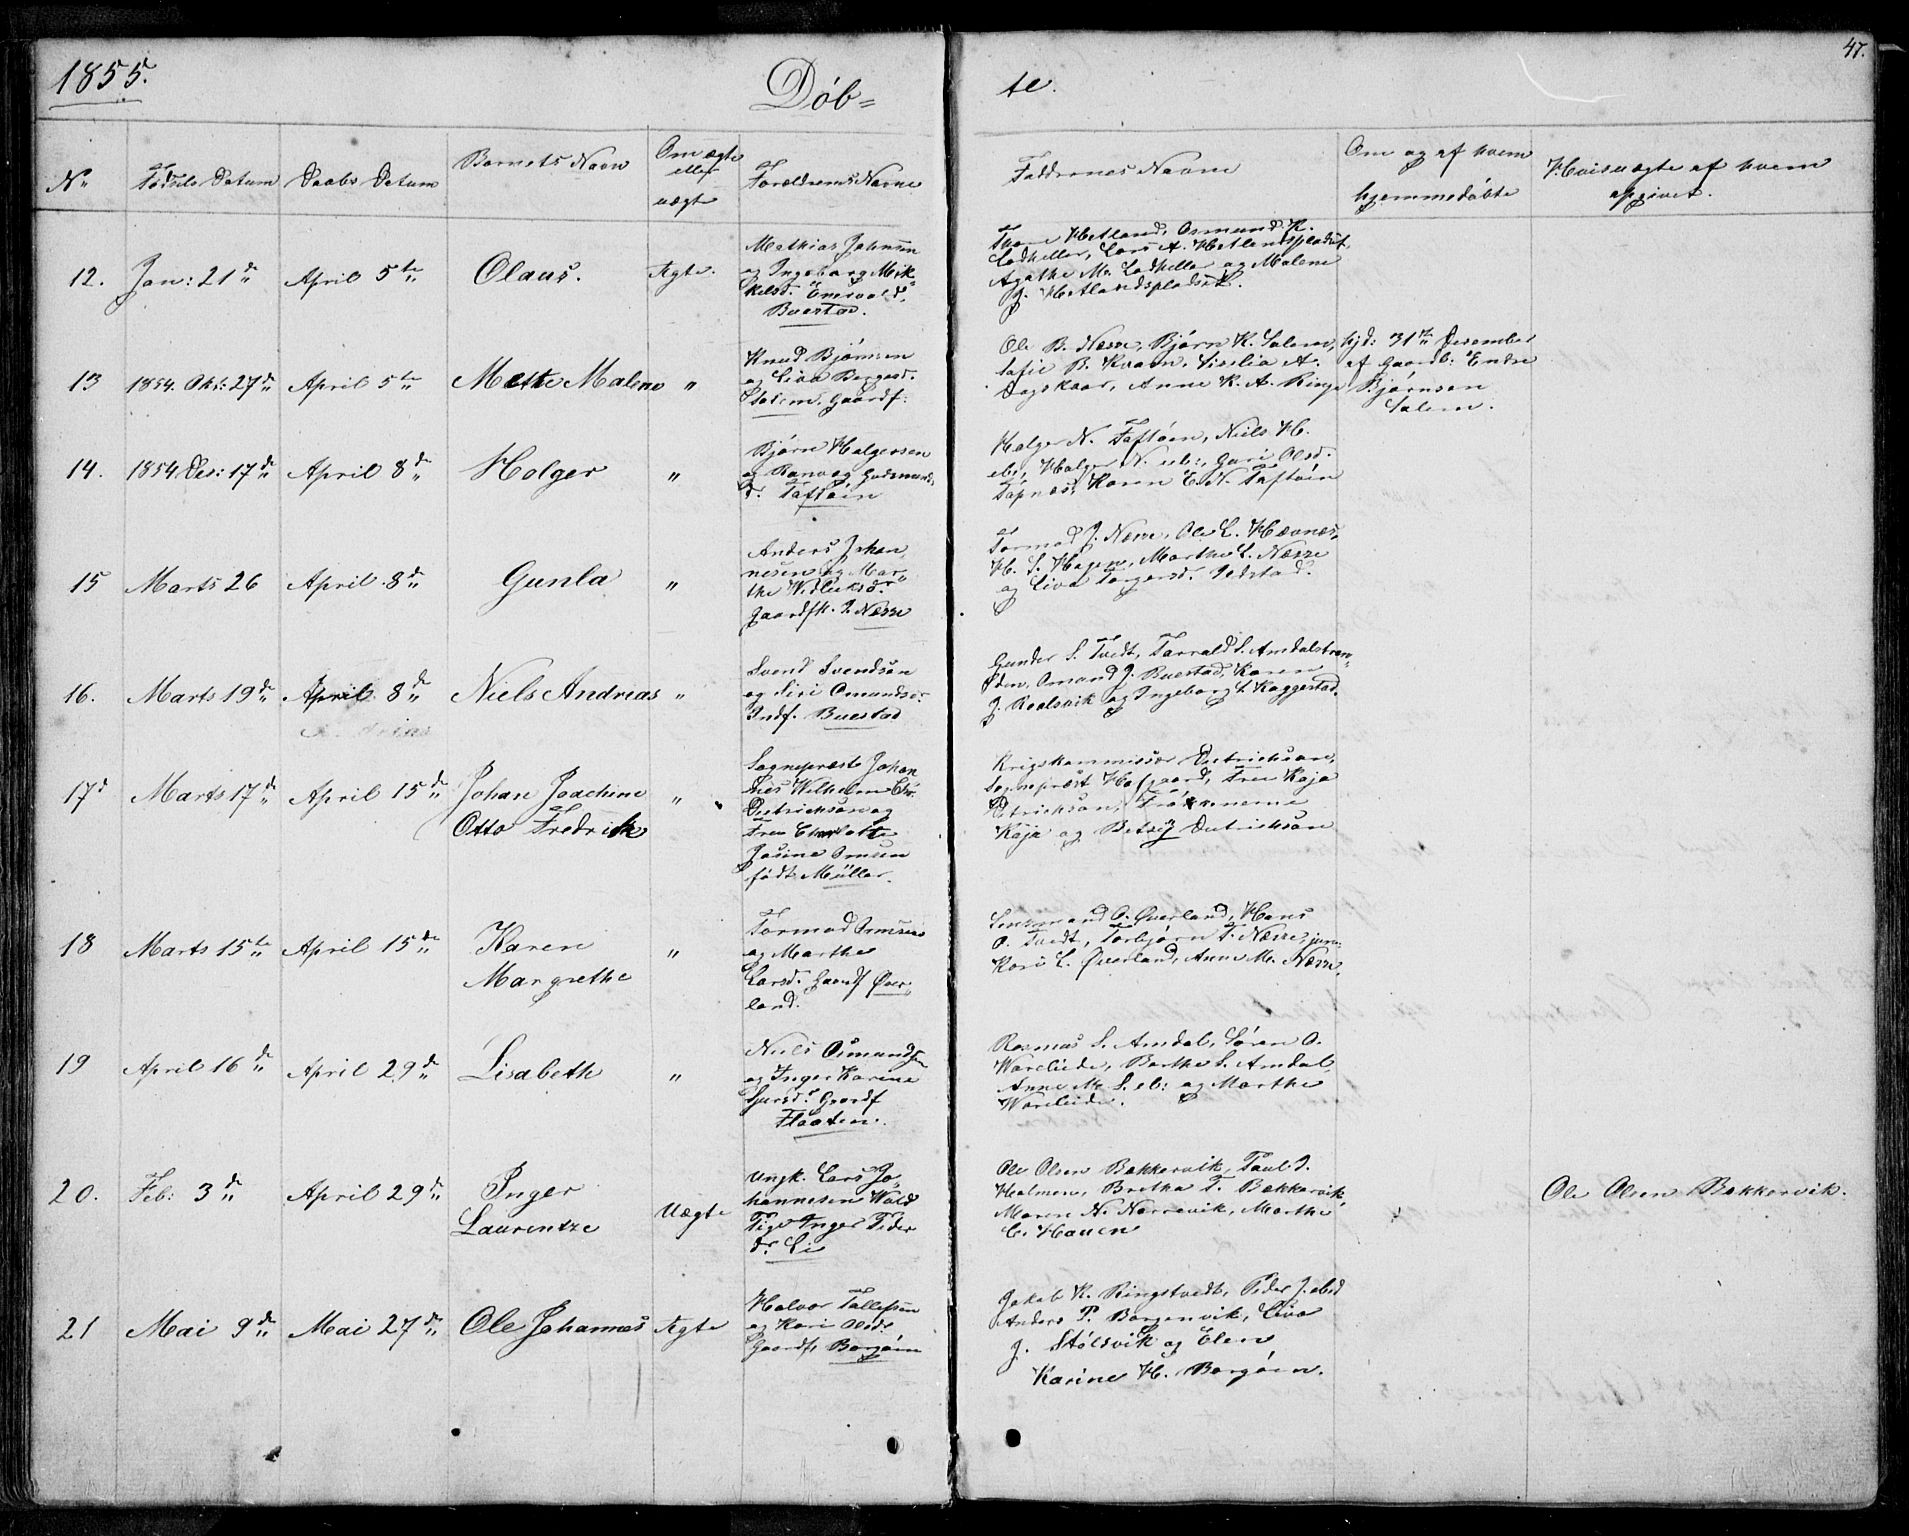 1855.
Döb=
te.
47.
No
Födsels Datum
Daabs Datum
Barnets Navn
Om ægte
eller
uægte
Forældrenes Navne
Faddernes Navne
Om og af hvem
hjemmedöbte
Hvis uægte af hvem
opgivet.
12.
Jan: 21de
April 5te
Olaus.
Ægte.
Mathias Johnsen
og Ingeborg Mik
kelsd.
Buestad.
Hetland, Osmund K.
Ladheller, Lars A. Hetlandspladset,
Agathe M. Ladheller og Malene
J. Hetlandspladset.
13
1854. Okt: 27de
April 5te
Mette Malene
"
Knud Björnsen
og Siva Borgesd.
Salem. Gaardf:
Ole B. Næsse, Björn K. Salem,
Sofie B. Kvavn, Sissilia A.
Dagskaar, Anne K. A. Ringe
hjd: 31te Desember
af Gaardb: Endre
Björnsen
Salem.
14.
1854 Des: 17de
April 8de
Holger
"
Björn Holgersen
og Ranveg Gudmunds
dr. Taftöin
Holger N. Taftöin, Niels H.
eb:, Holger N. eb:, Guri Olsd.
Tapnes, Karen E. N. Taftöin
15
Marts 26
April 8de
Gunla
"
Anders Johan
nesen og Mar
the Vidliksd.
Gaardfk. I. Næsse
Tormod J. Næsse, Ole L. Hævnes,
H. S. Hagen, Marthe L. Næsse
og Siva Torgersd. Jelstad.
16.
Marts 19de
April 8de
Niels Andreas
"
Svend Svendsen
og Siri Omundsdr.
Indf. Buestad
Gunder S. Tvedt, Tarrald S. Amdalstran-
den, Omund J. Buestad, Karen
J. Roalsvik og Ingeborg S. Kaggestad.
17d
Marts 17de
April 15de
Johan Joachim
Otto Fredrik
"
Sognepræst Johan
nes Wilhelm Chr.
Dietrichson og
Fru Charlotte
Josine Omsen
födt Müller.
Krigskommissær Dietrichson,
Sognepræst Hofgaard, Fru Kaja
Dietrichson, Frökenerne
Kaja og Betzy Dietrichson
18
Marts 15te
April 15de
Karen
Margrethe
"
Tormod Omsen
og Marthe
Larsd. Gaardf Øver-
land.
O. Øverland, Hans
O. Tvedt, Torbjörn T. Næsse, jun:
Kari L. Øverland, Anne M. Næsse.
19
April 16de
April 29de
Lisabeth
"
Niels Osmundsen
og Inger Karine
Sjursd. Gaardf
Flaaten.
Rasmus S. Amdal, Sören O.
Wareleide, Berthe S. Amdal,
Anne M. S. eb: og Marthe
Wareleide.
20.
Feb: 3de
April 29de
Inger
Laurentze
Uægte
Ungk. Lars Jo
hannesen Wold
Pige Inger Peder
dr. Li
Ole Olsen Bakkervik, Paul J.
Holmen, Bretha T. Bakkervik,
Maren N. Narravik, Marthe
C. Hauen
Ole Olsen Bakkervik.
21
Mai 9de
Mai 27de
Ole Johannes
Ægte
Halvor Tollefsen
og Kari Olsd.
Gaardf. Borgöin
Jakob K. Ringstvedt, Peder Jakobsd
Anders P. Borgenvik, Siva
J. Stölsvik og Elen
Karine H. Borgöin.